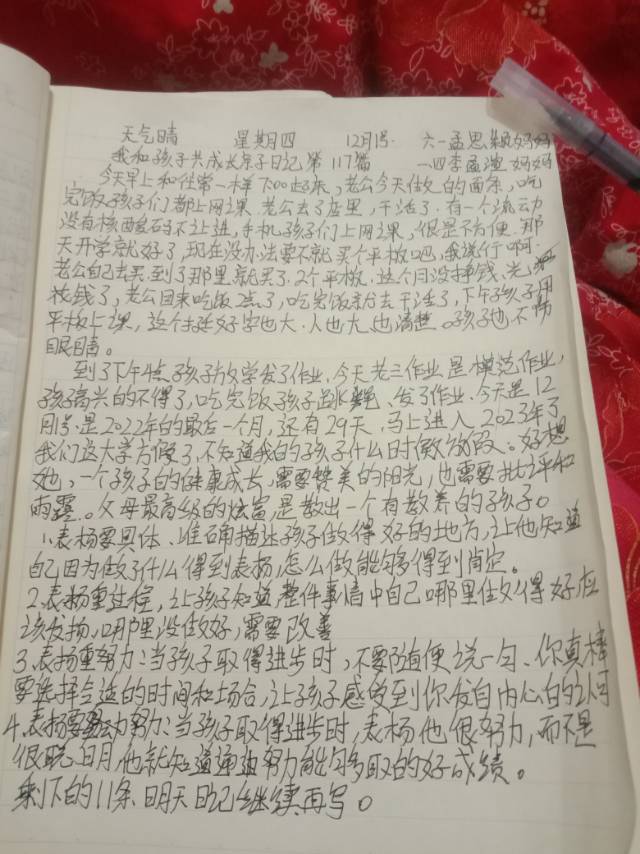 天气晴 星期四 12月1号 六一孟思颖妈妈
我和孩子共成长亲子日记第117篇 一四李孟澄妈妈
今天早上和往常一样7:00起来,老公今天做的面条,吃
完饭孩子们都上网课.老公去了店里,干活了.有一个流动
没有核酸码不让进,手机孩子们上网课,很是不方便.那
天开学就好了,现在没办法要不就买个平板吧,我说行啊.
老公自己去买.到了那里就买了.2个平板.这个月没挣钱,光
花钱了,老公回来吃饭了,吃完饭就去干活了,下午孩子用
平板上课,这个挺好字也大.人也大也清楚.孩子也不伤
眼睛。
到了下午4点孩子放学发了作业,今天老三作业是模范作业,
孩子高兴的不得了,吃完饭孩子跳绳、发了作业.今天是12
月1号是2022年的最后一个月,还有29天,马上进入2023年了
我们这大学放假了,不知道我的孩子什么时候放假。好想
她,一个孩子的健康成长,需要赞美的阳光,也需要批评和
雨露.。父母最高级的炫富,是教出一个有教养的孩子。
1.表杨要具体.准确描述孩子做得好的地方,让他知道
自己因为做了什么得到表扬,怎么做能够得到肯定。
2.表扬重过程,让孩子知道整件事情中自己哪里做得好应
该发扬,哪里没做好,需要改善
3.表扬重努力:当孩子取得进步时,不要随便说一句.你真棒
要选择合适的时间和场合,让孩子感受到你发自内心的认可
4.表杨要努力:当孩子取得进步时,表杨他很努力,而不是
很聪明,他就知道通过努力能够多取的好成绩。
剩下的11条.明天日记继续再写。